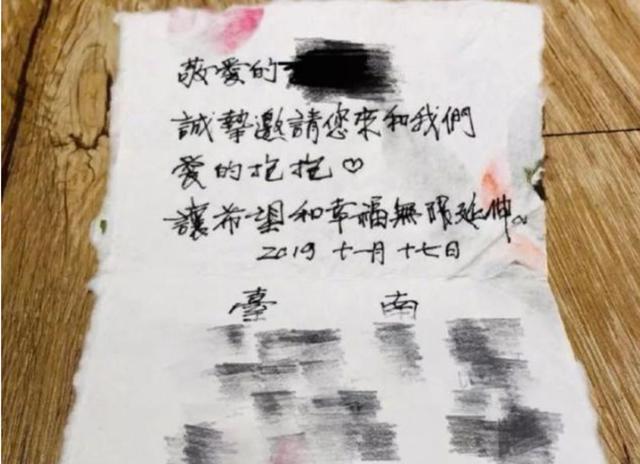 敬愛的
誠摯邀請您來和我們
愛的抱抱♡
讓希望和幸福無限延伸。
2019 十一月 十七日
臺 南